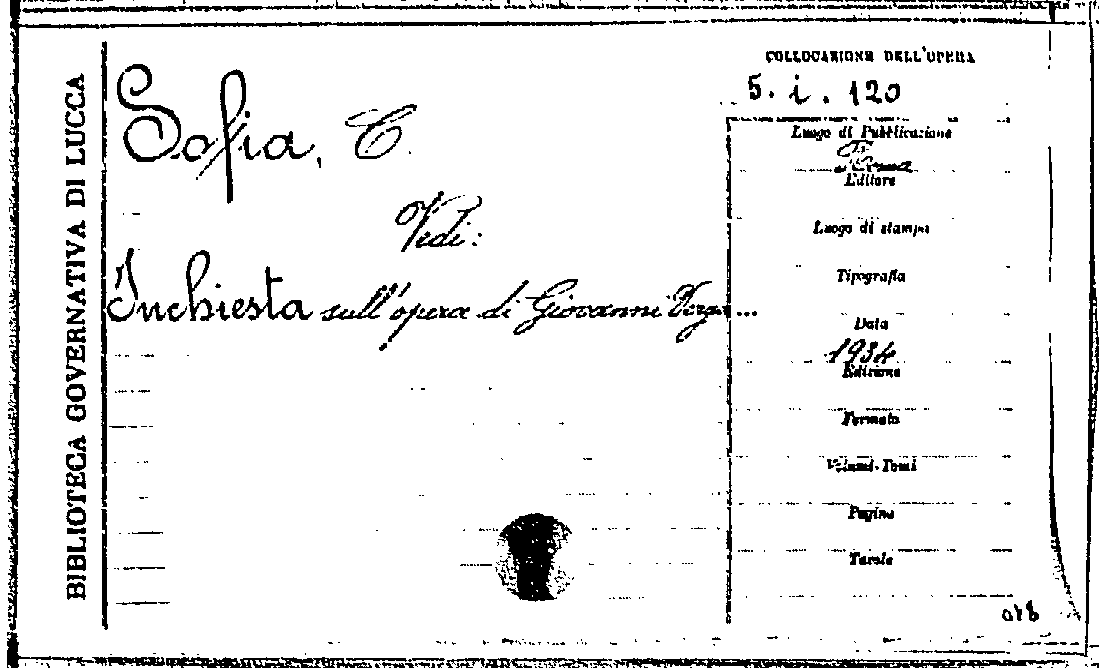 BIBLIOTECA GOVERNATIVA DI LUCCA
Sofia, C.
Vedi:
Inchiesta sull'opera di Giovanni Verga...
COLLOCAZIONE DELL'OPERA
5. i. 120
Luogo di Pubblicazione
Roma
Editore
Luogo di stampa
Tipografia
Data
1934
Edizione
Formato
Volumi-Tomi
Pagine
Tavole